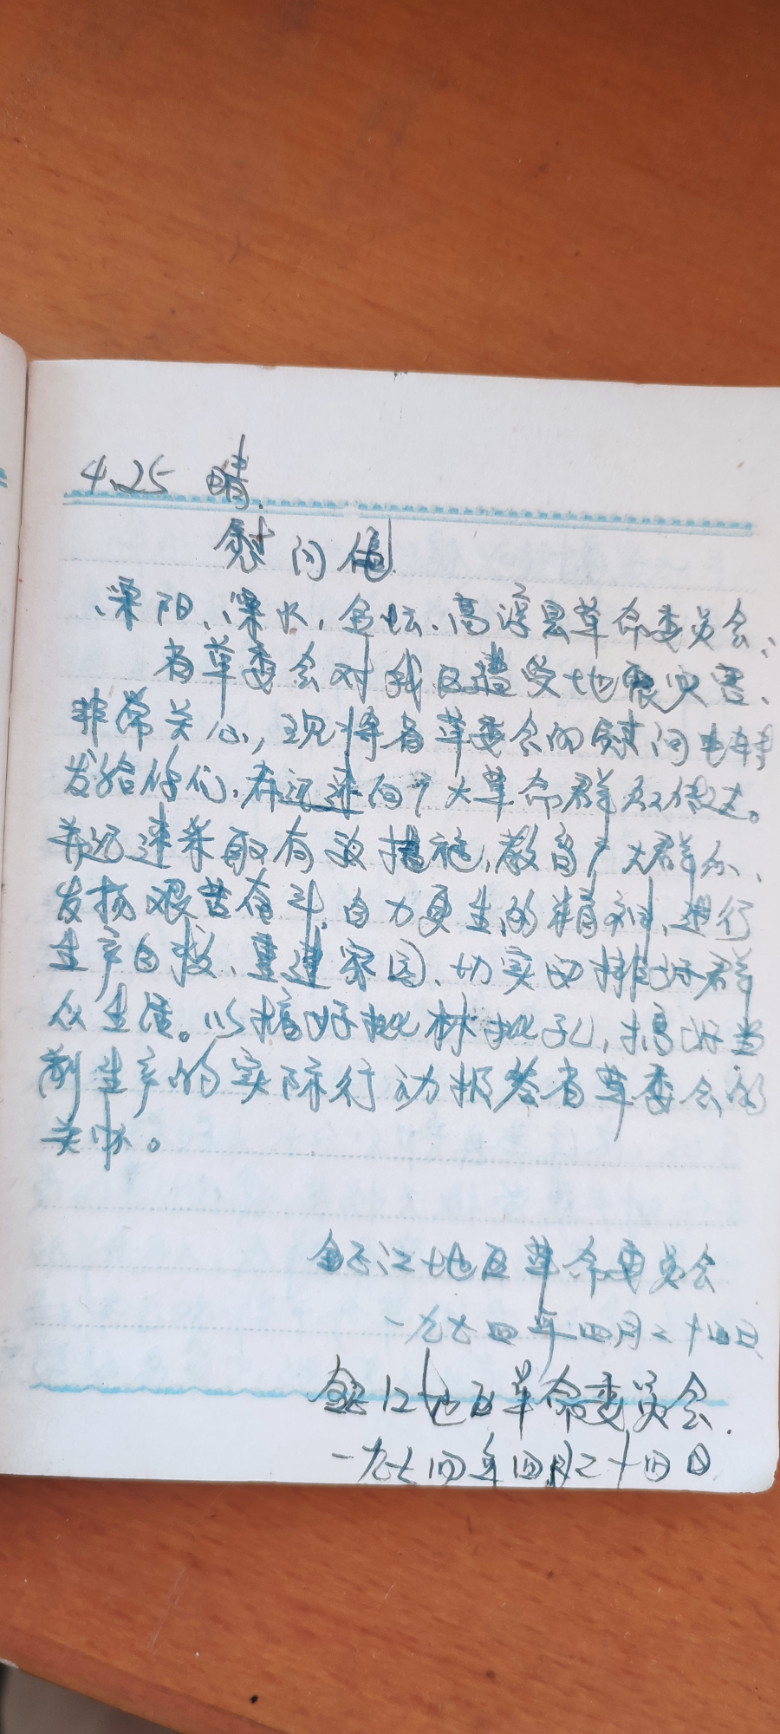 4.25 晴.
慰问信
溧阳、溧水、金坛、高淳县革命委员会:
省革委会对我区遭受地震灾害、
非常关心,现将省革委会的慰问电转
发给你们,希迅速向广大革命群众传达。
并迅速采取有效措施,教育广大群众、
发扬艰苦奋斗,自力更生的精神,进行
生产自救、重建家园、切实安排好群
众生活。以搞好批林批孔,搞好当
前生产的实际行动报答省革委会的
关怀。
镇江地区革命委员会
一九七四年四月二十四日
镇江地区革命委员会.
一九七四年四月二十四日